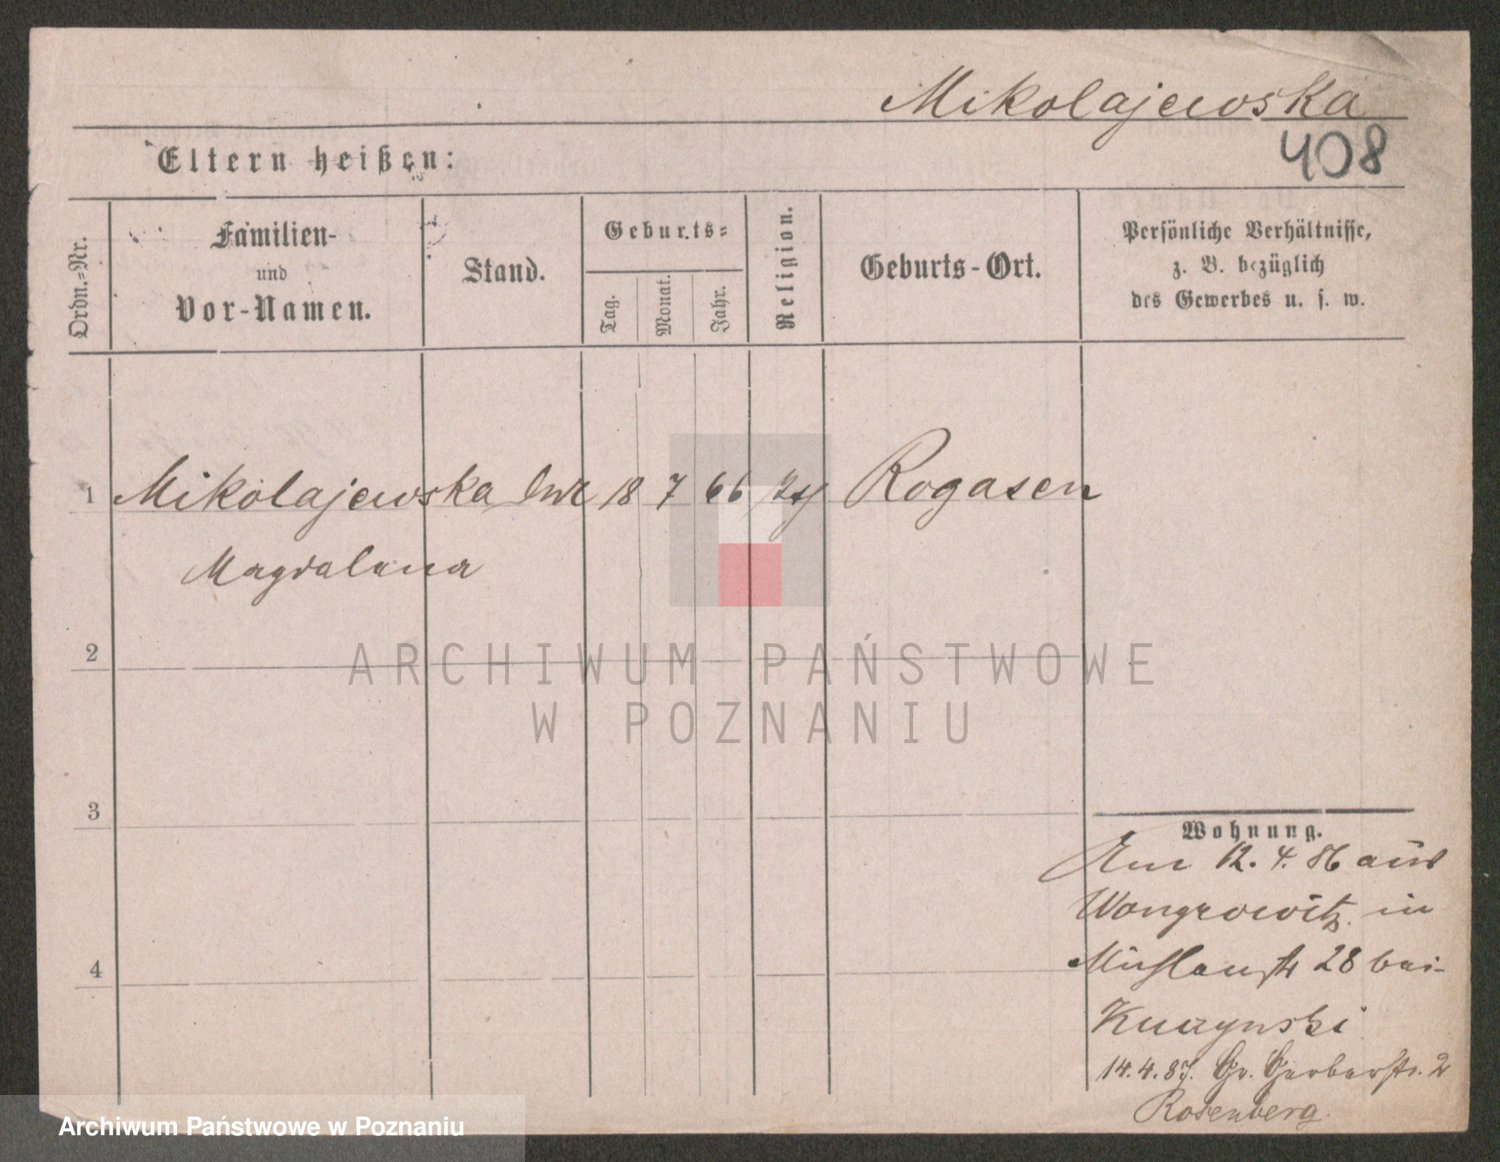 Mikolajewska
408
Eltern heißen:
Ordn.-Nr.
Familien-
und
Vor-Namen.
Stand.
Geburts-
Tag.
Monat.
Jahr.
Religion.
Geburts-Ort.
Persönliche Verhältnisse,
z. B. bezüglich
des Gewerbes u. s. w.
1 Mikolajewska 18 7 66 Rogasen
Magdalena
2
ARCHIWUM PAŃSTWOWE
W POZNANIU
3
Wohnung.
Am 12. 4. 86 aus
Wongrowitz in
Mühlenstr 28 bei
Kuczynski
4
14.4.87. Gr. Gerberstr. 2
Rosenberg.
Archiwum Państwowe w Poznaniu